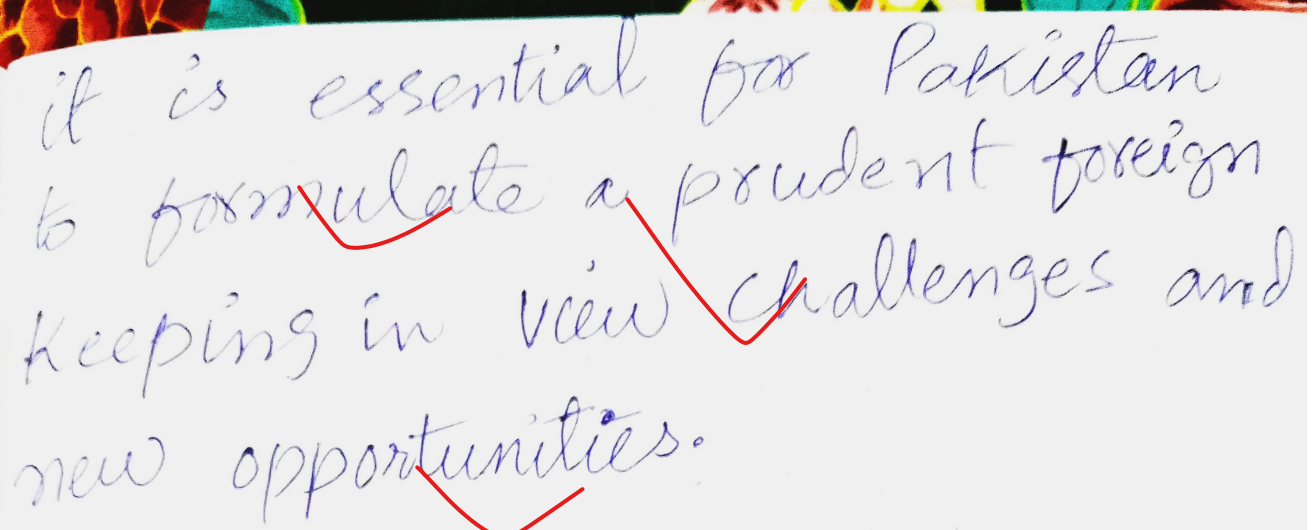 it is essential for Pakistan
to formulate a prudent foreign
keeping in view challenges and
new opportunities.